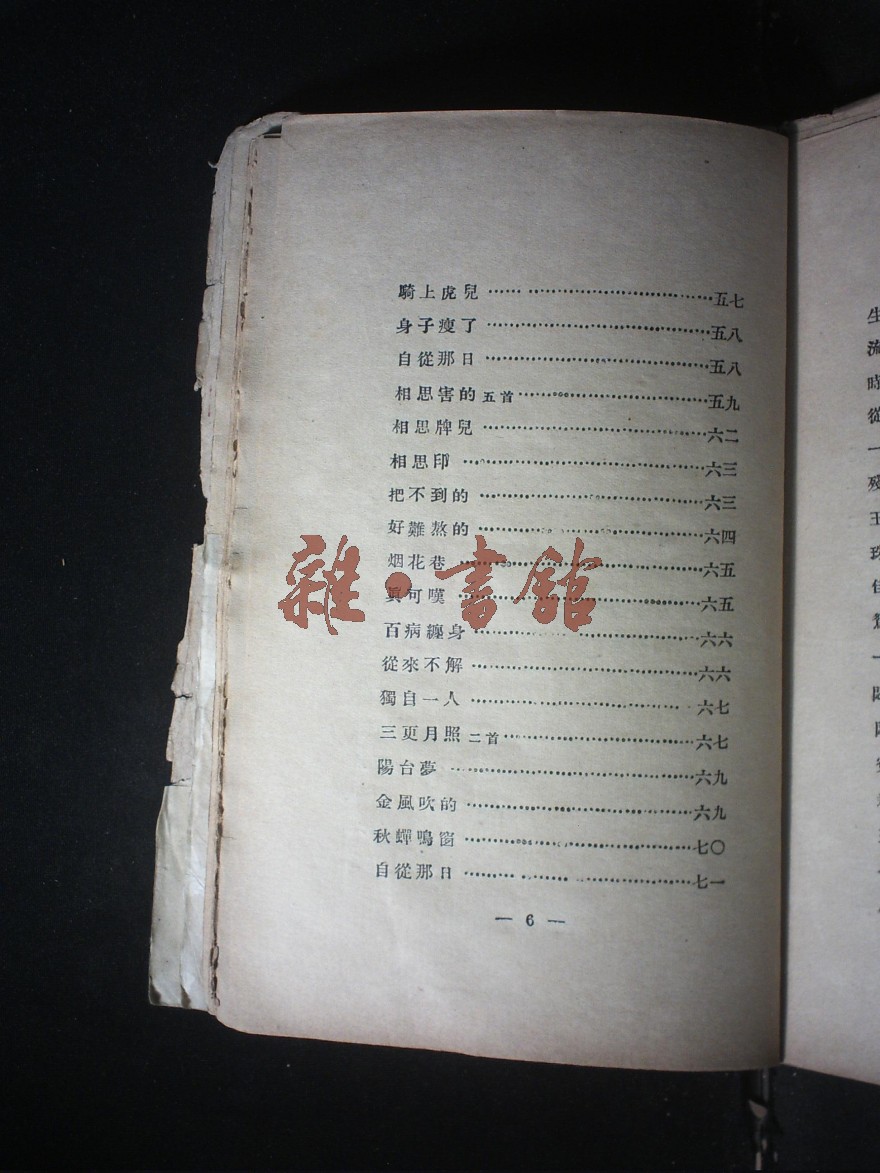 騎上虎兒……………………………五七
身子瘦了……………………………五八
自從那日……………………………五八
相思害的 五首……………………………五九
相思牌兒……………………………六二
相思印……………………………六三
把不到的……………………………六三
好難熬的……………………………六四
烟花巷……………………………六五
眞可嘆……………………………六五
百病纏身……………………………六六
從來不解……………………………六六
獨自一人……………………………六七
三更月照 二首……………………………六七
陽台夢……………………………六九
金風吹的……………………………六九
秋蟬鳴窗……………………………七〇
自從那日……………………………七一
— 6 —
雜·書館
生
時
從
一
殘
王
珠
佳
一